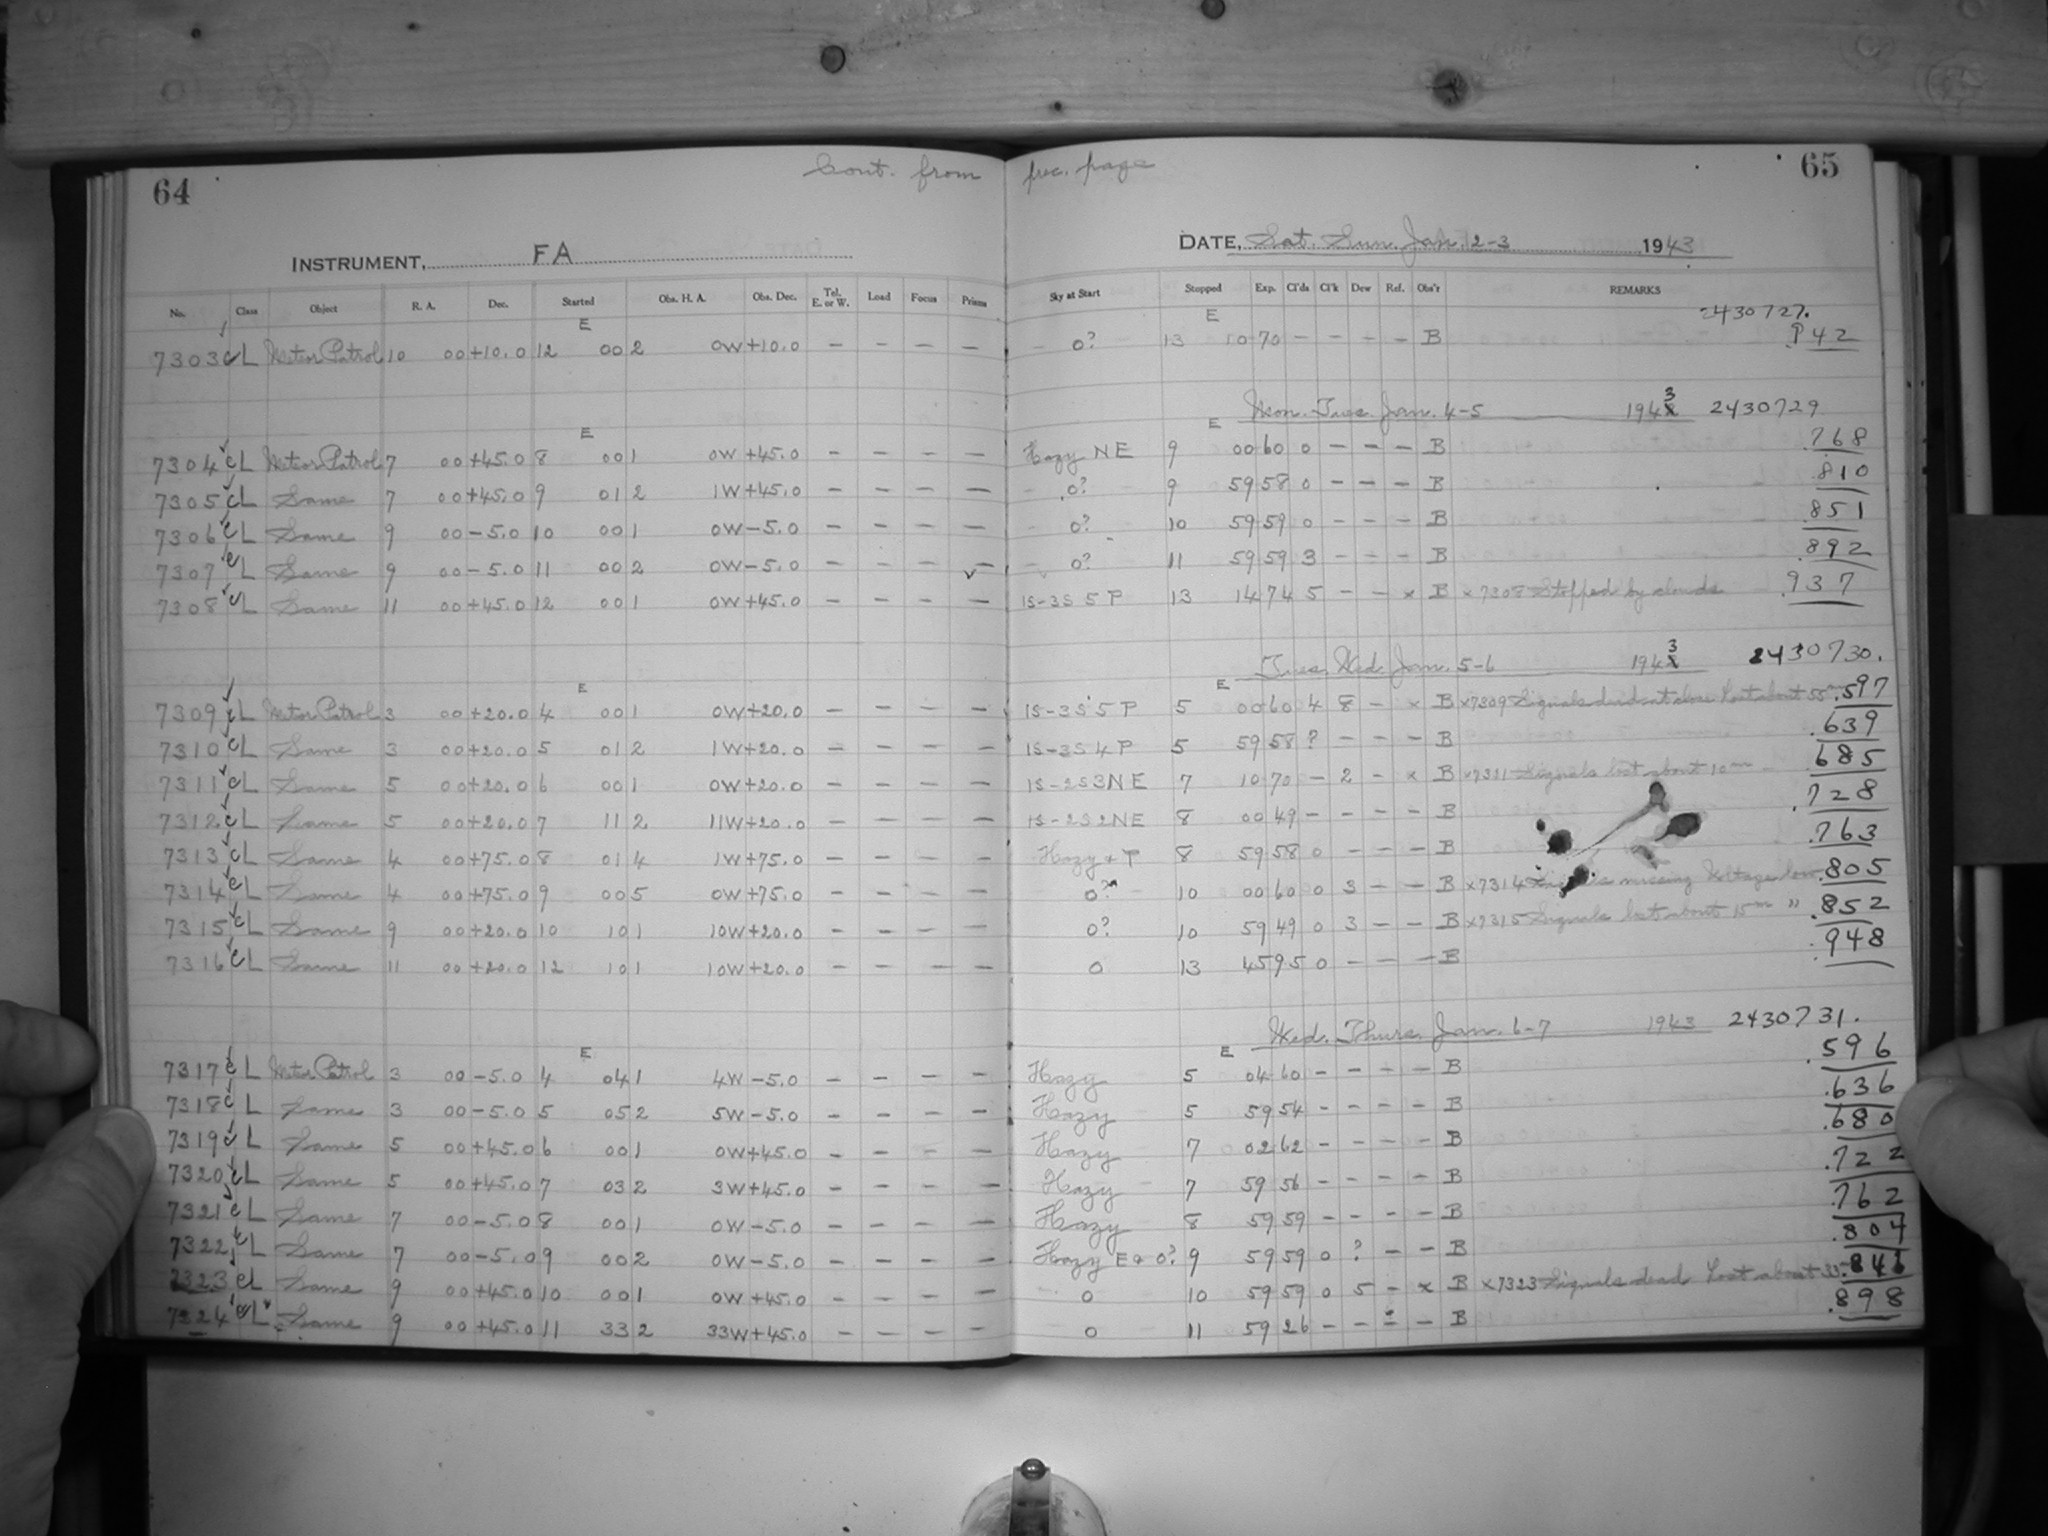 64 Cont. from prec. page 65
INSTRUMENT, FA DATE, Sat. Sun. Jan. 2-3 1943
No. Class Object R. A. Dec. Started Obs. H. A. Obs. Dec. Tel. E. or W. Load Focus Prisms Sky at Start Stopped Exp. Cl'ds Cl'k Dew Ref. Obs'r REMARKS
E E 2430727.
7303 cL Meteor Patrol 10 00 +10.0 12 00 2 0W +10.0 — — — — 0? 13 10 70 — — — — B 42
Mon. Tues. Jan. 4-5 1943 2430729
E E
7304 cL Meteor Patrol 7 00 +45.0 8 00 1 0W +45.0 — — — — Hazy NE 9 00 60 0 — — — B .768
7305 cL Same 7 00 +45.0 9 01 2 1W +45.0 — — — — 0? 9 59 58 0 — — — B .810
7306 cL Same 9 00 -5.0 10 00 1 0W -5.0 — — — — 0? 10 59 59 0 — — — B .851
7307 cL Same 9 00 -5.0 11 00 2 0W -5.0 — — — — 0? 11 59 59 3 — — — B .892
7308 cL Same 11 00 +45.0 12 00 1 0W +45.0 — — — — 1S-3S 5 P 13 14 74 5 — — x B x7308 Stopped by clouds .937
Tues. Wed. Jan. 5-6 1943 2430730.
E E
7309 cL Meteor Patrol 3 00 +20.0 4 00 1 0W +20.0 — — — — 1S-3S 5 P 5 00 60 4 8 — x B x7309 Signals dead at close Lost about 55m .597
7310 cL Same 3 00 +20.0 5 01 2 1W +20.0 — — — — 1S-3S 4 P 5 59 58 ? — — — B .639
7311 cL Same 5 00 +20.0 6 00 1 0W +20.0 — — — — 1S-2S 3NE 7 10 70 — 2 — x B x7311 Signals lost about 10m .685
7312 cL Same 5 00 +20.0 7 11 2 11W +20.0 — — — — 1S-2S 2NE 8 00 49 — — — — B .728
7313 cL Same 4 00 +75.0 8 01 4 1W +75.0 — — — — Hazy + P 8 59 58 0 — — — B .763
7314 cL Same 4 00 +75.0 9 00 5 0W +75.0 — — — — 0? 10 00 60 0 3 — — B x7314 missing Voltage low .805
7315 cL Same 9 00 +20.0 10 10 1 10W +20.0 — — — — 0? 10 59 49 0 3 — — B x7315 Signals lost about 15m " .852
7316 cL Same 11 00 +20.0 12 10 1 10W +20.0 — — — — 0 13 45 95 0 — — — B .948
Wed. Thurs. Jan. 6-7 1943 2430731.
E E
7317 cL Meteor Patrol 3 00 -5.0 4 04 1 4W -5.0 — — — — Hazy 5 04 60 — — — — B .596
7318 cL Same 3 00 -5.0 5 05 2 5W -5.0 — — — — Hazy 5 59 54 — — — — B .636
7319 cL Same 5 00 +45.0 6 00 1 0W +45.0 — — — — Hazy 7 02 62 — — — — B .680
7320 cL Same 5 00 +45.0 7 03 2 3W +45.0 — — — — Hazy 7 59 56 — — — — B .722
7321 cL Same 7 00 -5.0 8 00 1 0W -5.0 — — — — Hazy 8 59 59 — — — — B .762
7322 cL Same 7 00 -5.0 9 00 2 0W -5.0 — — — — Hazy E & 0? 9 59 59 0 ? — — B .804
7323 cL Same 9 00 +45.0 10 00 1 0W +45.0 — — — — 0 10 59 59 0 5 — x B x7323 Signals dead Lost about
7324 cL Same 9 00 +45.0 11 33 2 33W +45.0 — — — — 0 11 59 26 — — — — B .898